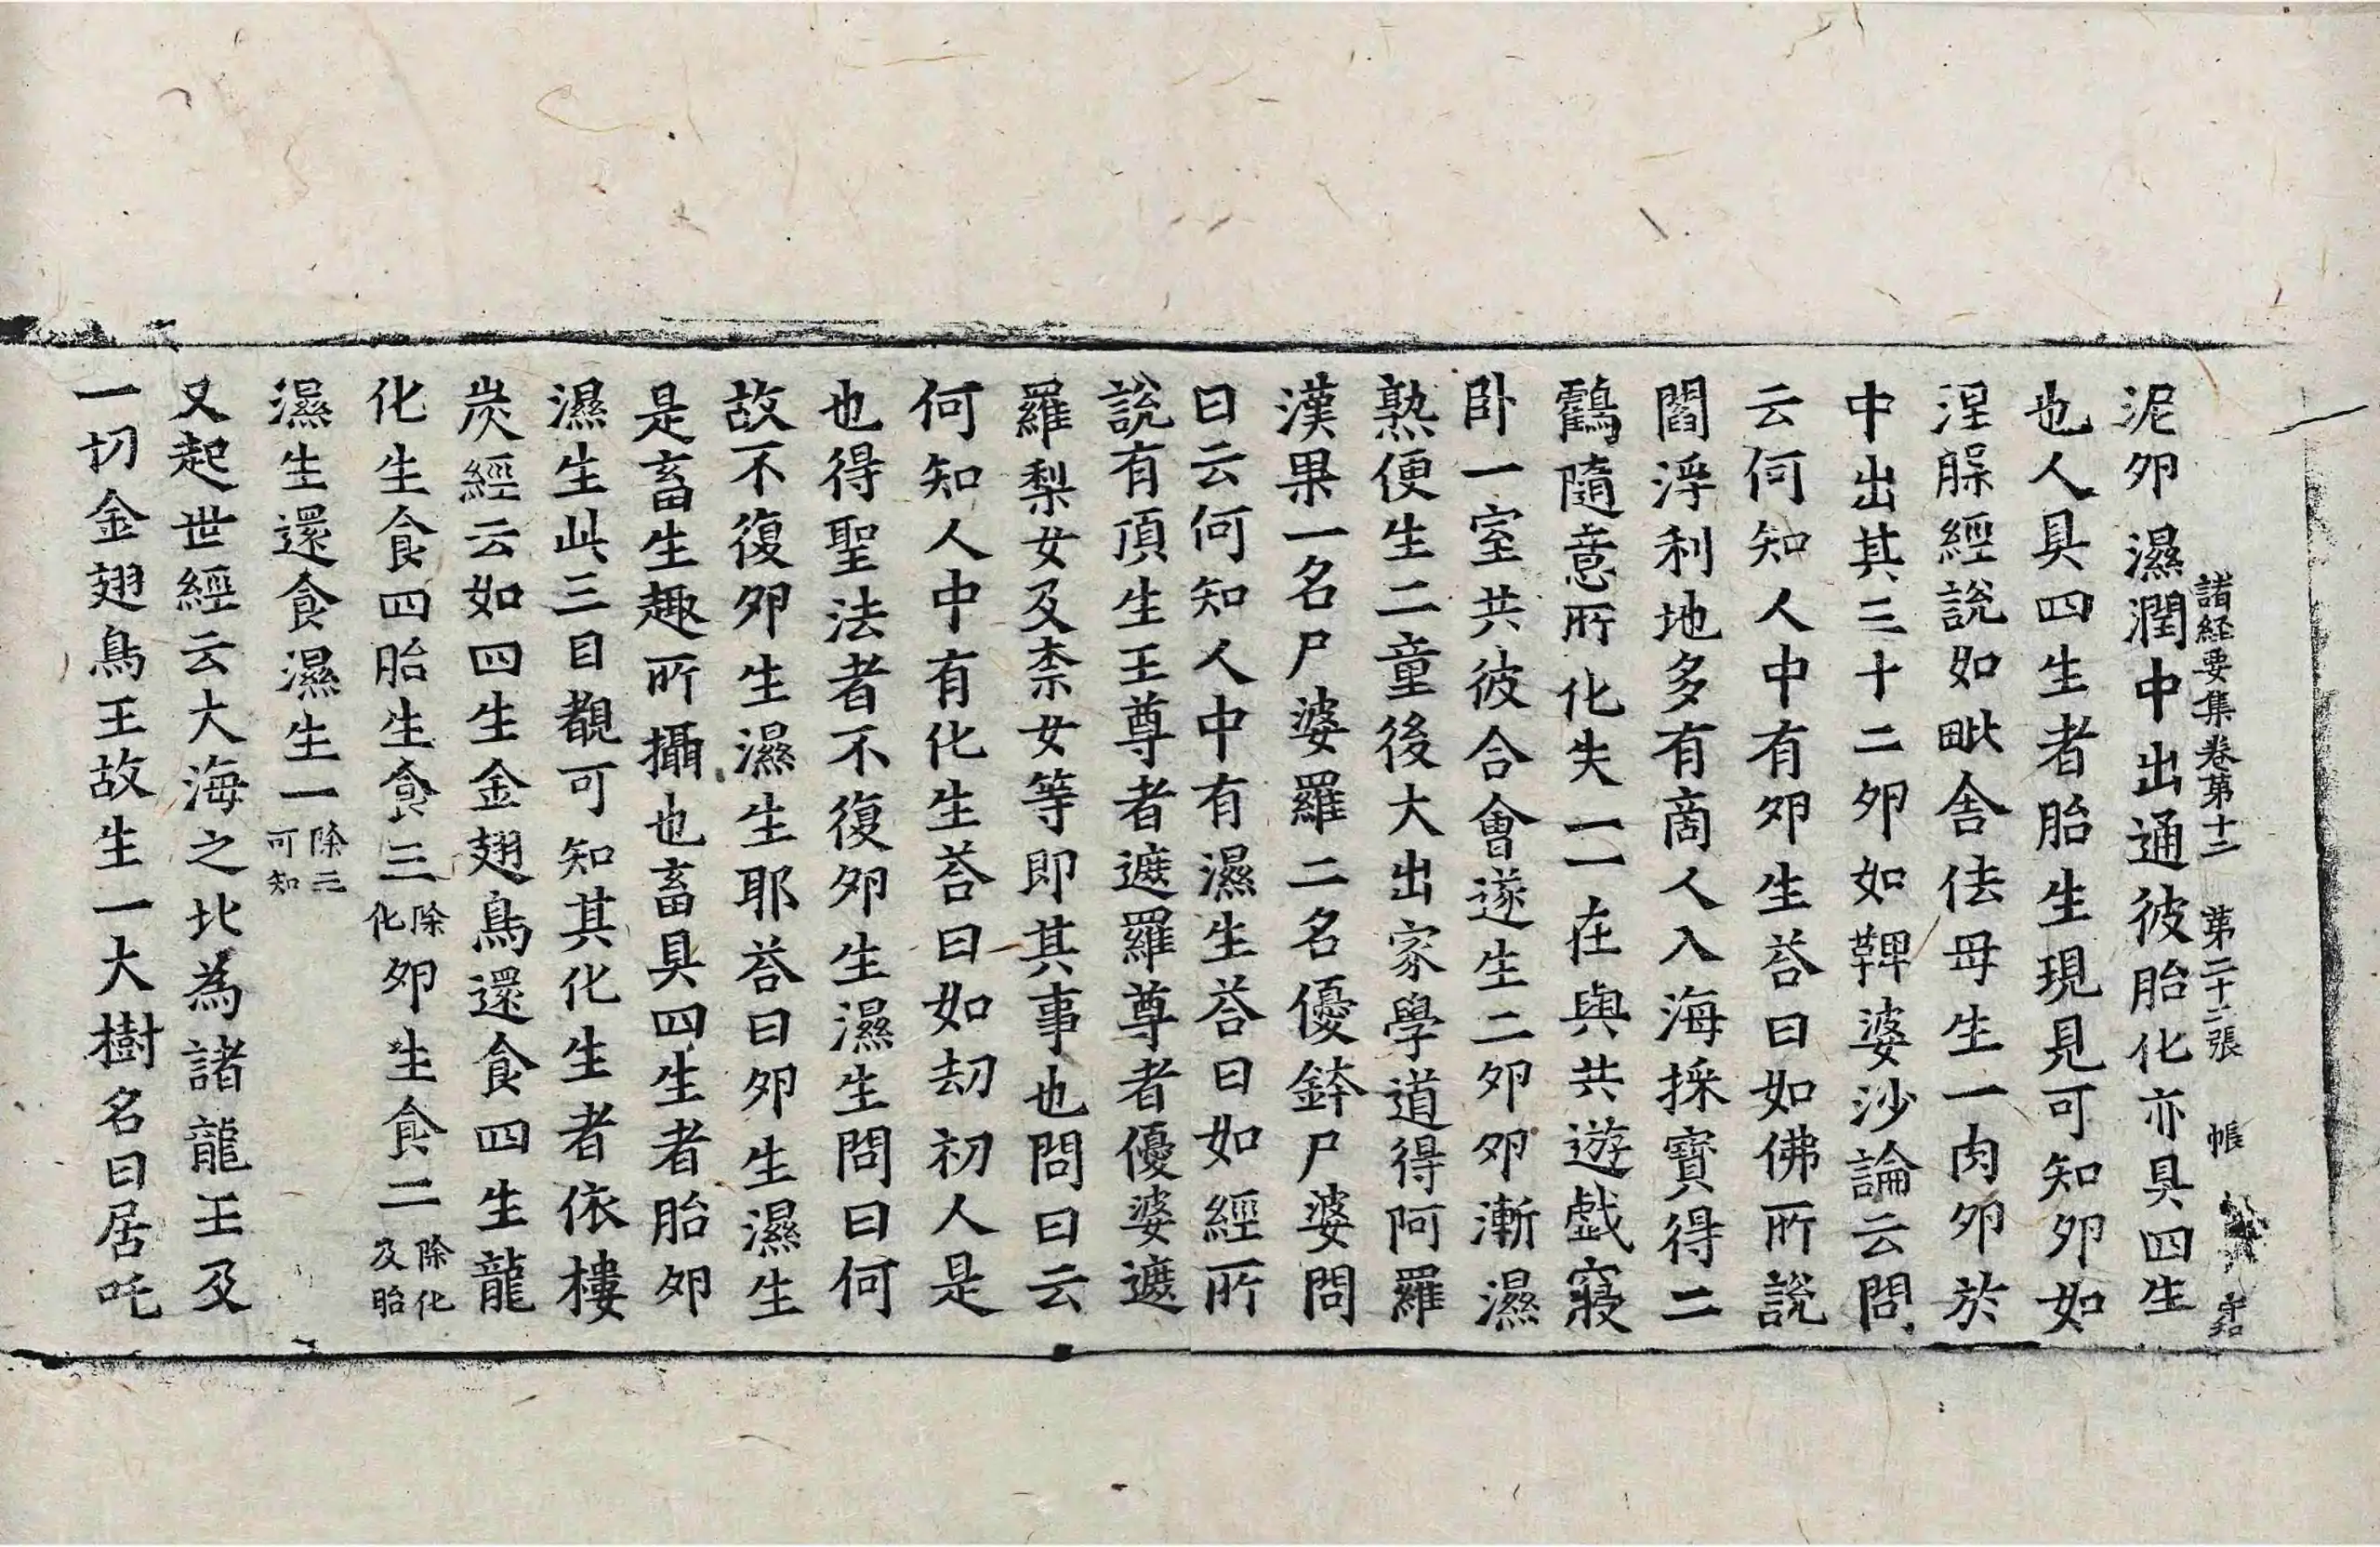 泥卵濕潤中出通彼胎化亦具四生
諸經要集卷第十二 第二十二張 帳
也人具四生者胎生現見可知卵如
涅槃經說如毗舍佉母生一肉卵於
中出其三十二卵如鞞婆沙論云問
云何知人中有卵生荅曰如佛所說
閻浮利地多有商人入海採寶得二
鸖隨意所化失一一在與共遊戲寢
卧一室共彼合會遂生二卵卵漸濕
熟便生二童後大出家學道得阿羅
漢果一名尸婆羅二名優鉢尸婆問
曰云何知人中有濕生荅曰如經所
說有頂生王尊者遮羅尊者優婆遮
羅梨女及柰女等即其事也問曰云
何知人中有化生荅曰如劫初人是
也得聖法者不復卵生濕生問曰何
故不復卵生濕生耶荅曰卵生濕生
是畜生趣所攝也畜具四生者胎卵
濕生此三目覩可知其化生者依樓
炭經云如四生金翅鳥還食四生龍
化生食四胎生食三除化卵生食二除化及胎
濕生還食濕生一除三可知
又起世經云大海之北為諸龍王及
一切金翅鳥王故生一大樹名曰居吒